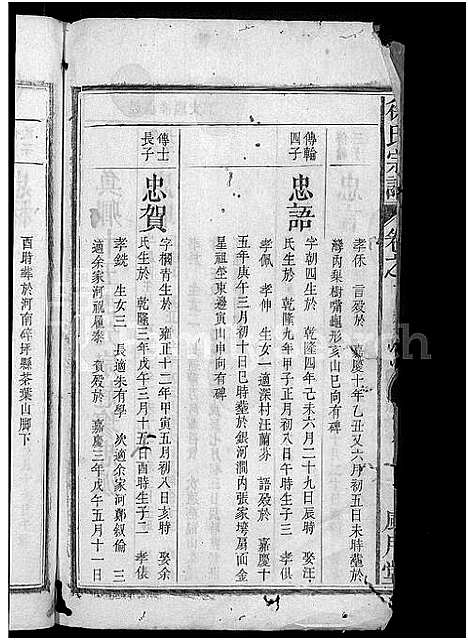 氏宗譜
卷之
孝保 言歿於 嘉慶十年乙丑又六月初五日未時𦵏於
灣內梨樹嘴龜形亥山巳向有碑
傳翰
四子
忠語
字朝四生於 乾隆四年己未六月二十九日辰時 娶汪
氏生於 乾隆九年甲子正月初八日午時生子三 孝俱
孝佩 孝伸 生女一適深村汪蘭芬 語歿於 嘉慶十
五年庚午三月初十日巳時𦵏於銀河澗內張家塝扇面金
星祖坐東邊寅山申向有碑
傳士
長子
忠賀
字櫚青生於 雍正十二年甲寅五月初八日亥時 娶余
氏生於 乾隆三年戊午三月十五日酉時生子二 孝俵
孝銑 生女三 長適朱有學 次適余家河鄭叙倫 三
適余家河祝雁泰 賀歿於 嘉慶三年戊午五月十一日
酉時𦵏於河南碎坪縣茶葉山腳下